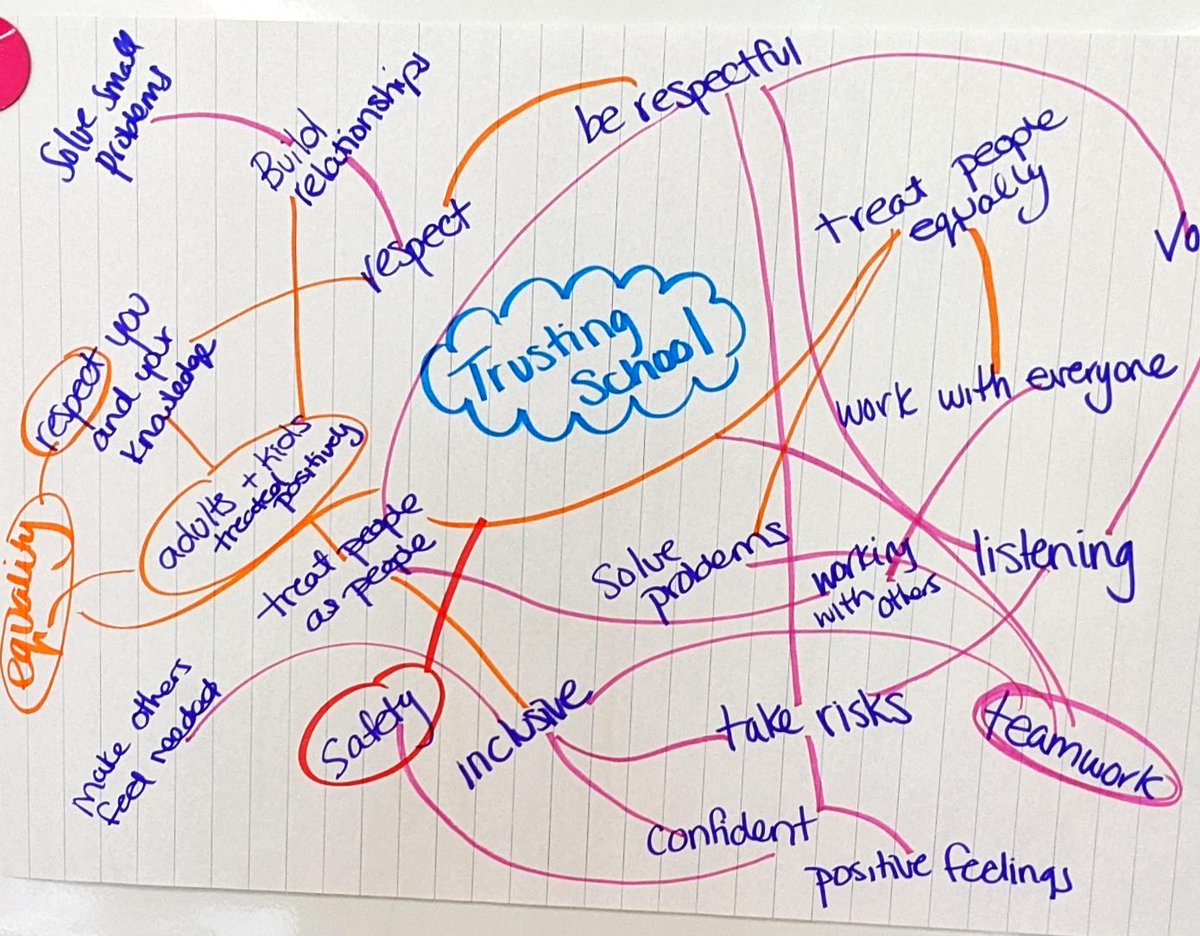 Solve small
problems
Build
relationships
be respectful
treat people
equally
respect
respect you
and your
knowledge
Trusting
School
work with everyone
adults + kids
treated
positively
equality
treat people
as people
Solve
problems
working
with others
listening
make others
feel needed
Safety
inclusive
take risks
teamwork
confident
positive feelings